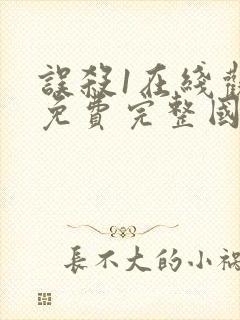 誤殺1在綫觀
免費完整國
長不大的小禍